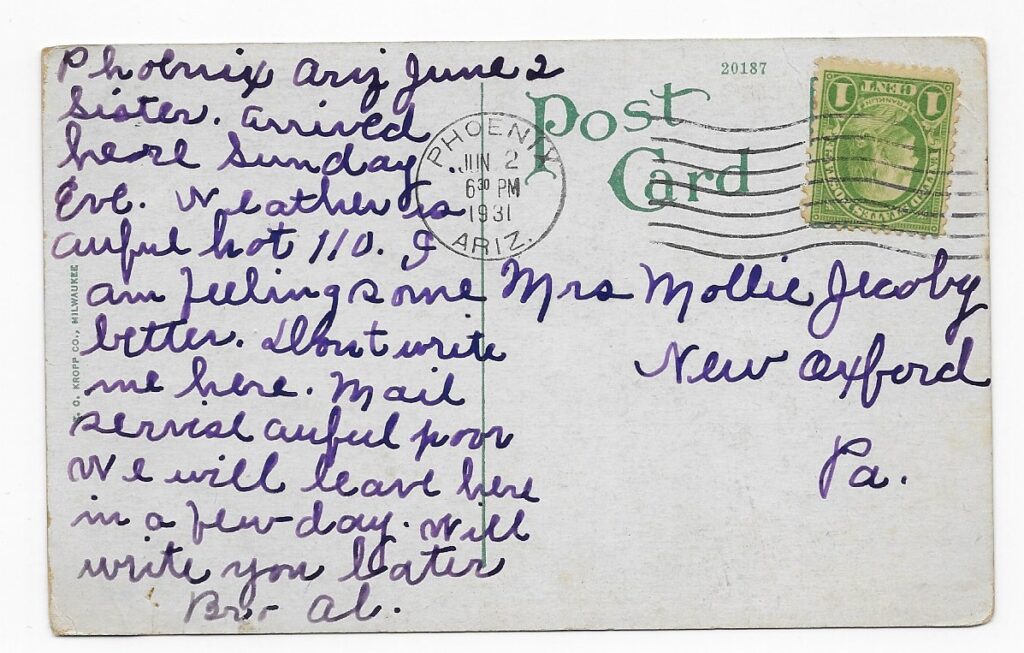 Phoenix Ariz June 2
Sister. arrived
here Sunday
Eve. Weather is
auful hot 110. I
am feeling some
better. Dont write
me here. Mail
servise auful poor
We will leave here
in a few-day. Will
write you later
Bro- Al.
20187
Post
Card
PHOENIX
JUN 2
6 30 PM
1931
ARIZ.
1 CENT 1
FRANKLIN
Mrs Mollie Jecoby
New Oxford
Pa.
E. C. KROPP CO., MILWAUKEE